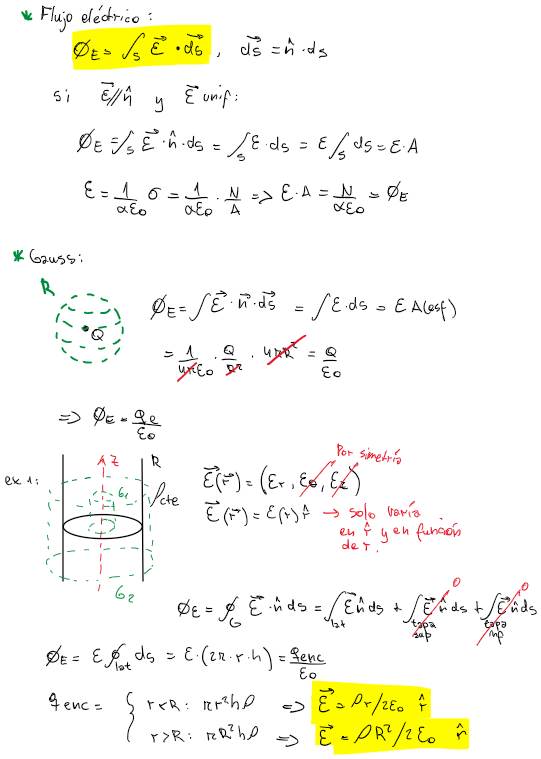 * Flujo eléctrico:
ϕE = ∫s E⃗ · ds⃗ , ds⃗ = n̂ · ds
si E⃗ // n̂ y E⃗ unif:
ϕE = ∫s E⃗ · n̂ · ds = ∫s E · ds = E ∫s ds = E · A
E = 1/αε0 σ = 1/αε0 · N/A => E · A = N/αε0 = ϕE
* Gauss:
R
Q
ϕE = ∫ E⃗ · n⃗ · ds⃗ = ∫ E · ds = E A(esf)
= 1/4πε0 · Q/R² · 4πR² = Q/ε0
=> ϕE = qe/ε0
ex 1:
z
R
G1
ρcte
G2
Por simetría
E⃗(r⃗) = (Er, Eθ, Ez)
E⃗(r⃗) = E(r) r̂ → solo varía
en r̂ y en función
de r.
ϕE = ∮G E⃗ · n̂ ds = ∫lat E⃗ n̂ ds + ∫tapa sup E⃗ n̂ ds 0 + ∫tapa inf E⃗ n̂ ds 0
ϕE = E ∮lat ds = E · (2π · r · h) = qenc/ε0
qenc = { r<R: πr²hρ => E⃗ = ρr/2ε0 r̂
r>R: πR²hρ => E⃗ = ρR²/2ε0 r̂